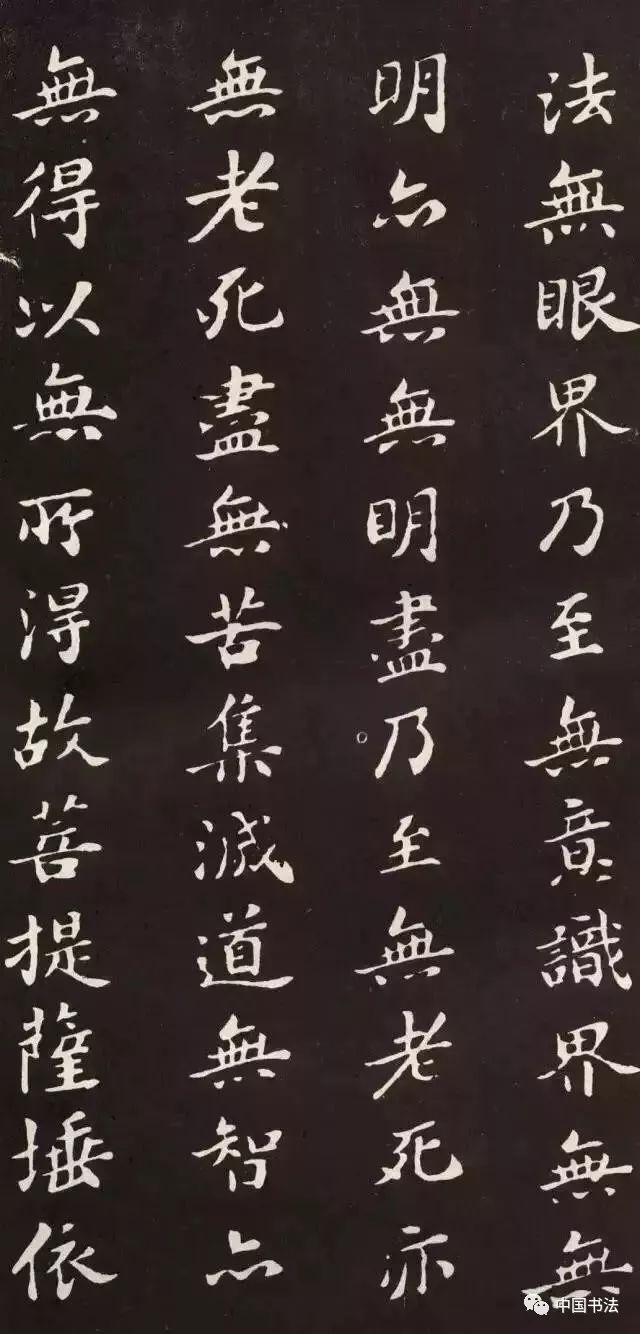 法無眼界乃至無意識界無無
明亦無無明盡乃至無老死亦
無老死盡無苦集滅道無智亦
無得以無所得故菩提薩埵依
中国书法